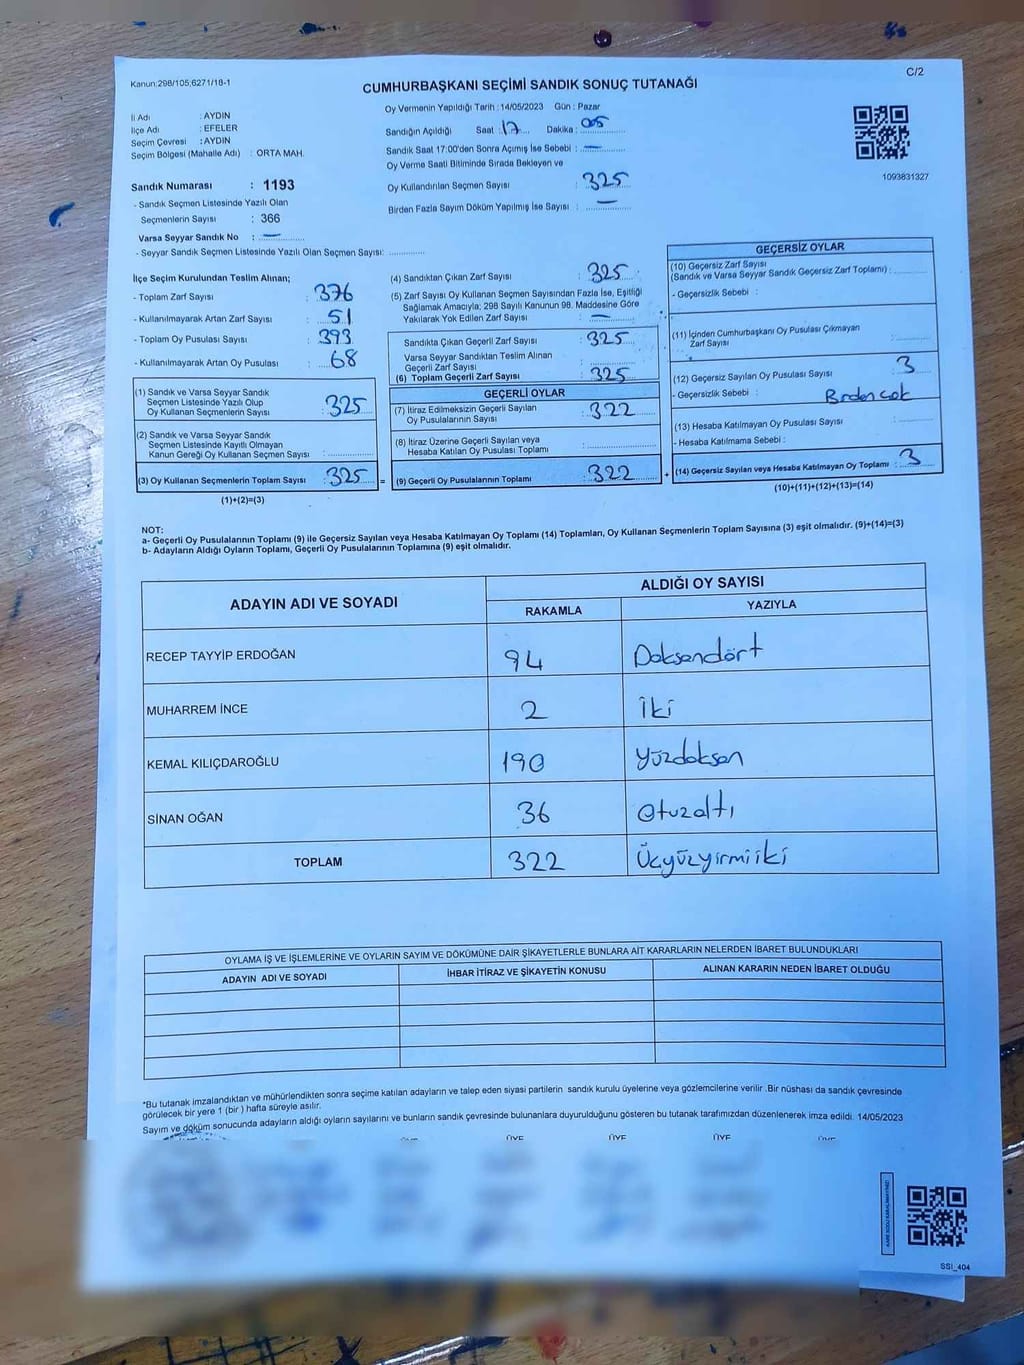 Kanun:298/105,6271/18-1
C/2
CUMHURBAŞKANI SEÇİMİ SANDIK SONUÇ TUTANAĞI
İl Adı : AYDIN
İlçe Adı : EFELER
Seçim Çevresi : AYDIN
Seçim Bölgesi (Mahalle Adı) : ORTA MAH.
Sandık Numarası : 1193
- Sandık Seçmen Listesinde Yazılı Olan
Seçmenlerin Sayısı : 366
Varsa Seyyar Sandık No : —
- Seyyar Sandık Seçmen Listesinde Yazılı Olan Seçmen Sayısı:
Oy Vermenin Yapıldığı Tarih : 14/05/2023 Gün : Pazar
Sandığın Açıldığı Saat : 17 Dakika : 005
Sandık Saat 17:00'den Sonra Açımış İse Sebebi : —
Oy Verme Saati Bitiminde Sırada Bekleyen ve
Oy Kullandırılan Seçmen Sayısı : 325
Birden Fazla Sayım Döküm Yapılmış İse Sayısı : —
1093831327
İlçe Seçim Kurulundan Teslim Alınan;
- Toplam Zarf Sayısı : 376
- Kullanılmayarak Artan Zarf Sayısı : 51
- Toplam Oy Pusulası Sayısı : 393
- Kullanılmayarak Artan Oy Pusulası : 68
(1) Sandık ve Varsa Seyyar Sandık
Seçmen Listesinde Yazılı Olup
Oy Kullanan Seçmenlerin Sayısı : 325
(2) Sandık ve Varsa Seyyar Sandık
Seçmen Listesinde Kayıtlı Olmayan
Kanun Gereği Oy Kullanan Seçmen Sayısı :
(3) Oy Kullanan Seçmenlerin Toplam Sayısı : 325 =
(1)+(2)=(3)
(4) Sandıktan Çıkan Zarf Sayısı : 325
(5) Zarf Sayısı Oy Kullanan Seçmen Sayısından Fazla İse, Eşitliği
Sağlamak Amacıyla; 298 Sayılı Kanunun 98. Maddesine Göre
Yakılarak Yok Edilen Zarf Sayısı : —
Sandıkta Çıkan Geçerli Zarf Sayısı : 325
Varsa Seyyar Sandıktan Teslim Alınan
Geçerli Zarf Sayısı :
(6) Toplam Geçerli Zarf Sayısı : 325
GEÇERLİ OYLAR
(7) İtiraz Edilmeksizin Geçerli Sayılan
Oy Pusulalarının Sayısı : 322
(8) İtiraz Üzerine Geçerli Sayılan veya
Hesaba Katılan Oy Pusulası Toplamı :
(9) Geçerli Oy Pusulalarının Toplamı : 322 +
GEÇERSİZ OYLAR
(10) Geçersiz Zarf Sayısı
(Sandık ve Varsa Seyyar Sandık Geçersiz Zarf Toplamı) :
- Geçersizlik Sebebi :
(11) İçinden Cumhurbaşkanı Oy Pusulası Çıkmayan
Zarf Sayısı :
(12) Geçersiz Sayılan Oy Pusulası Sayısı : 3
- Geçersizlik Sebebi :
(13) Hesaba Katılmayan Oy Pusulası Sayısı :
- Hesaba Katılmama Sebebi :
(14) Geçersiz Sayılan veya Hesaba Katılmayan Oy Toplamı : 3
(10)+(11)+(12)+(13)=(14)
NOT:
a- Geçerli Oy Pusulalarının Toplamı (9) ile Geçersiz Sayılan veya Hesaba Katılmayan Oy Toplamı (14) Toplamları, Oy Kullanan Seçmenlerin Toplam Sayısına (3) eşit olmalıdır. (9)+(14)=(3)
b- Adayların Aldığı Oyların Toplamı, Geçerli Oy Pusulalarının Toplamına (9) eşit olmalıdır.
ADAYIN ADI VE SOYADI
ALDIĞI OY SAYISI
RAKAMLA YAZIYLA
RECEP TAYYİP ERDOĞAN 94 Doksandört
MUHARREM İNCE 2 İki
KEMAL KILIÇDAROĞLU 190 Yüzdoksan
SİNAN OĞAN 36 Otuzaltı
TOPLAM 322 Üçyüzyirmiiki
OYLAMA İŞ VE İŞLEMLERİNE VE OYLARIN SAYIM VE DÖKÜMÜNE DAİR ŞİKAYETLERLE BUNLARA AİT KARARLARIN NELERDEN İBARET BULUNDUKLARI
ADAYIN ADI VE SOYADI İHBAR İTİRAZ VE ŞİKAYETİN KONUSU ALINAN KARARIN NEDEN İBARET OLDUĞU
*Bu tutanak imzalandıktan ve mühürlendikten sonra seçime katılan adayların ve talep eden siyasi partilerin sandık kurulu üyelerine veya gözlemcilerine verilir .Bir nüshası da sandık çevresinde
görülecek bir yere 1 (bir ) hafta süreyle asılır.
Sayım ve döküm sonucunda adayların aldığı oyların sayılarını ve bunların sandık çevresinde bulunanlara duyurulduğunu gösteren bu tutanak tarafımızdan düzenlenerek imza edildi. 14/05/2023
ÜYE ÜYE ÜYE
SSI_404